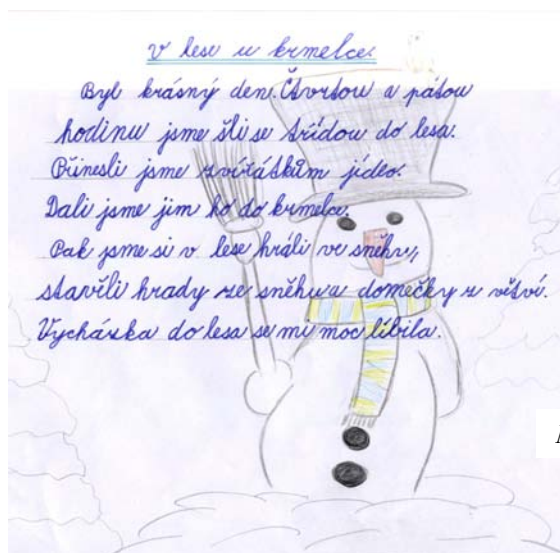 V lese u krmelce.
Byl krásný den. Čtvrtou a pátou
hodinu jsme šli se třídou do lesa.
Přinesli jsme zvířátkům jídlo.
Dali jsme jim ho do krmelce.
Pak jsme si v lese hráli ve sněhu,
stavěli hrady ze sněhu a domečky z větví.
Vycházka do lesa se mi moc líbila.